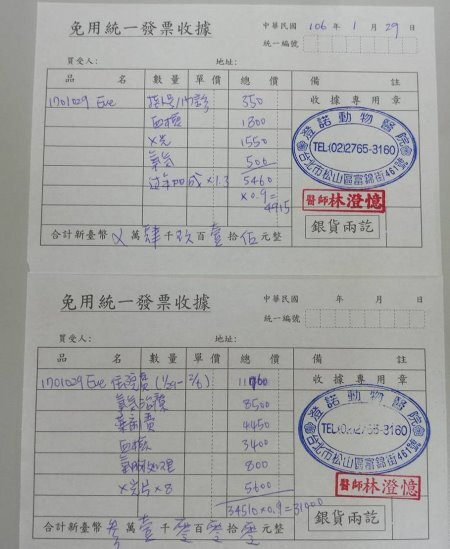 免用統一發票收據
中華民國 106 年 1 月 29 日
統一編號
買受人: 地址:
品名 數量 單價 總價 備註
1701029 Eve 掛號/門診 350 收據專用章
血檢 1800
X光 1550
氧氣 500
過年加成 x1.3 5460
x0.9=
4915
澄諾動物醫院
TEL:(02)2765-3160
台北市松山區富錦街461號
醫師 林澄憶
銀貨兩訖
合計新臺幣 X 萬 肆 千 玖 百 壹 拾 伍 元整
免用統一發票收據
中華民國 年 月 日
統一編號
買受人: 地址:
品名 數量 單價 總價 備註
1701029 Eve 住院費 (1/29-2/6) 收據專用章
氧氣治療 8500
藥劑費 4450
血檢 3400
800
X光片 x8 5600
34510x0.9=31000
澄諾動物醫院
TEL:(02)2765-3160
台北市松山區富錦街461號
醫師 林澄憶
銀貨兩訖
合計新臺幣 參 萬 壹 千 零 百 零 拾 零 元整